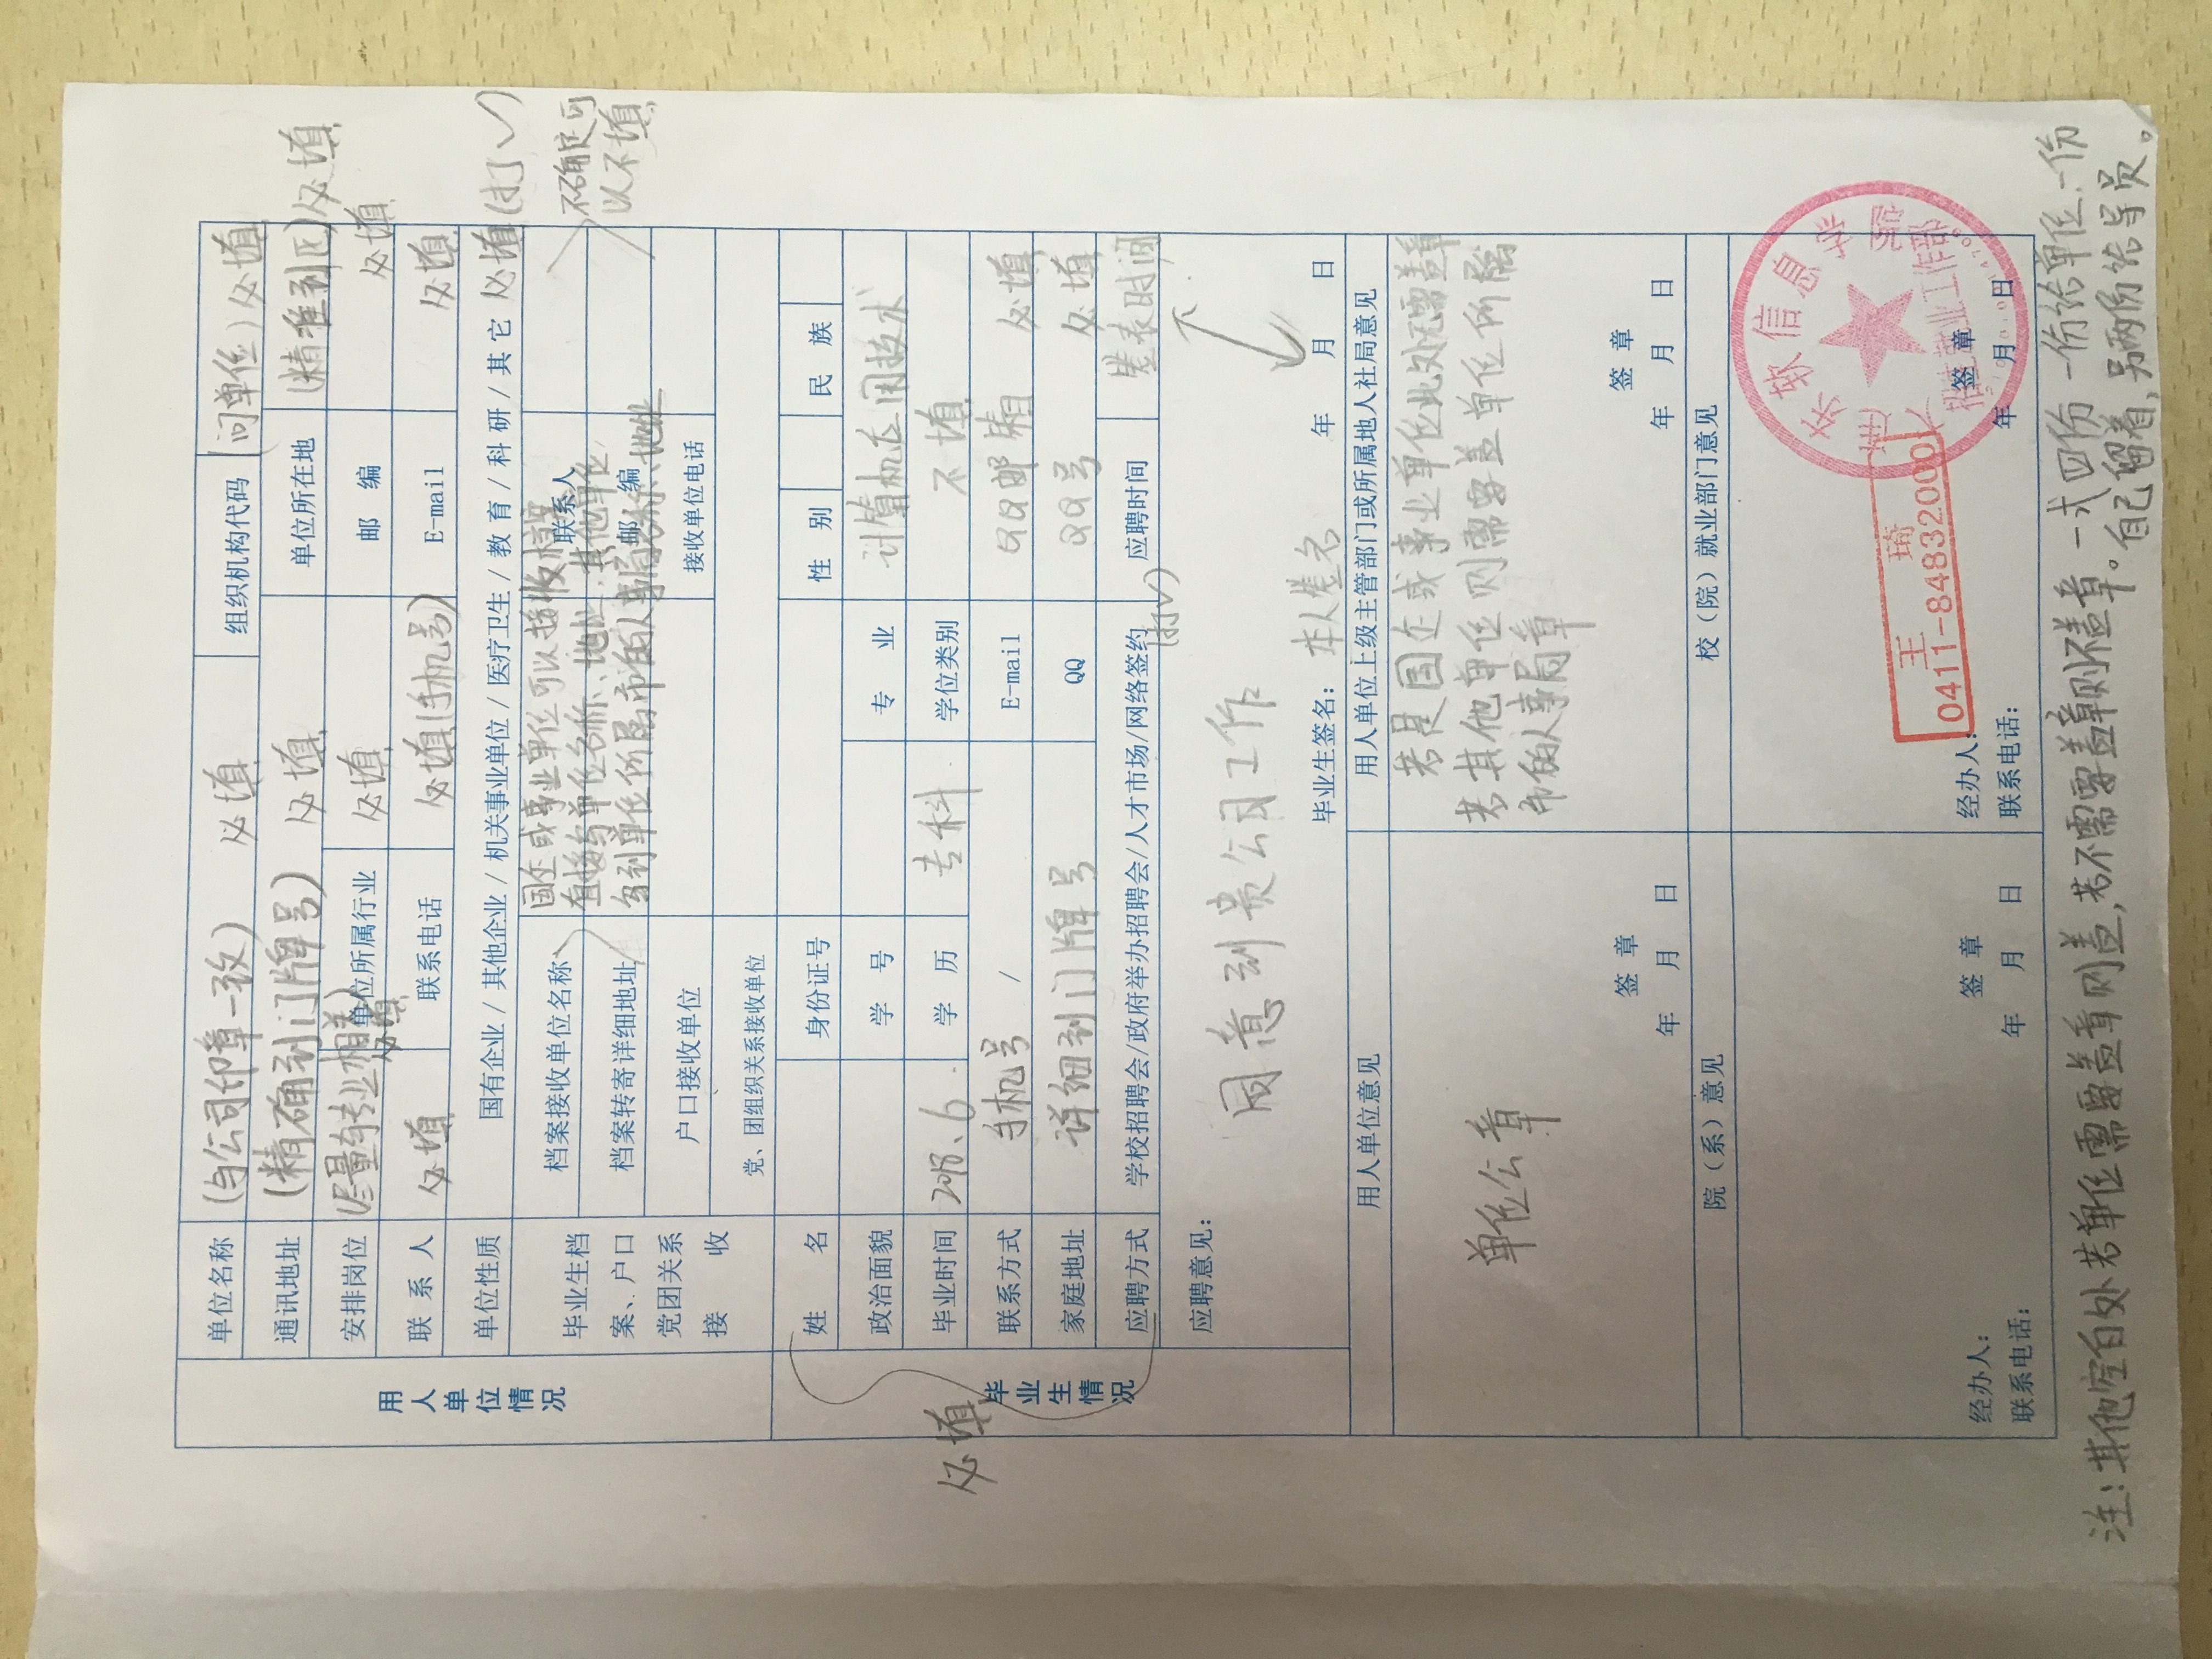 用人单位情况
单位名称 (与公司印章一致) 必填 组织机构代码 (问单位) 必填
通讯地址 (精确到门牌号) 必填 单位所在地 (精准到区) 必填
安排岗位 (尽量与专业相关) 必填 单位所属行业 必填 邮 编 必填
联系人 必填 联系电话 必填(手机号) E-mail 必填
单位性质 国有企业 / 其他企业 / 机关事业单位 / 医疗卫生 / 教育 / 科研 / 其它 必填 (打√)
毕业生档案、户口党团关系接收
档案接收单位名称 国企或事业单位可以接收档案 联系人
直接写单位名称、地址,其他单位
档案转寄详细地址 写到单位所属市的人事局名称、地址 邮 编
不确定可
以不填
户口接收单位 接收单位电话
党、团组织关系接收单位
必填
毕业生情况
姓 名 身份证号 性 别 民 族
政治面貌 学 号 专 业 计算机应用技术
毕业时间 2018.6. 学 历 专科 学位类别 不填
联系方式 手机号 / E-mail QQ邮箱 必填
家庭地址 详细到门牌号 QQ QQ号 必填
应聘方式 学校招聘会/政府举办招聘会/人才市场/网络签约 (打√) 应聘时间 签表时间
应聘意见:
同意到贵公司工作
毕业生签名: 本人签名 年 月 日
用人单位意见 用人单位上级主管部门或所属地人社局意见
若是国企或事业单位此处无需盖章
单位公章 若其他单位则需要盖单位所属
市的人事局章
签 章 签 章
年 月 日 年 月 日
院(系)意见 校(院)就业部门意见
大连东软信息学院
招生就业工作部
王 琦
0411-84832000
经办人: 签 章 经办人: 签 章
联系电话: 年 月 日 联系电话: 年 月 日
注:其他空白处若单位需要盖章则盖,若不需要盖章则不盖章。一式四份 一份给单位、一份
自己留着,另两份给导员。